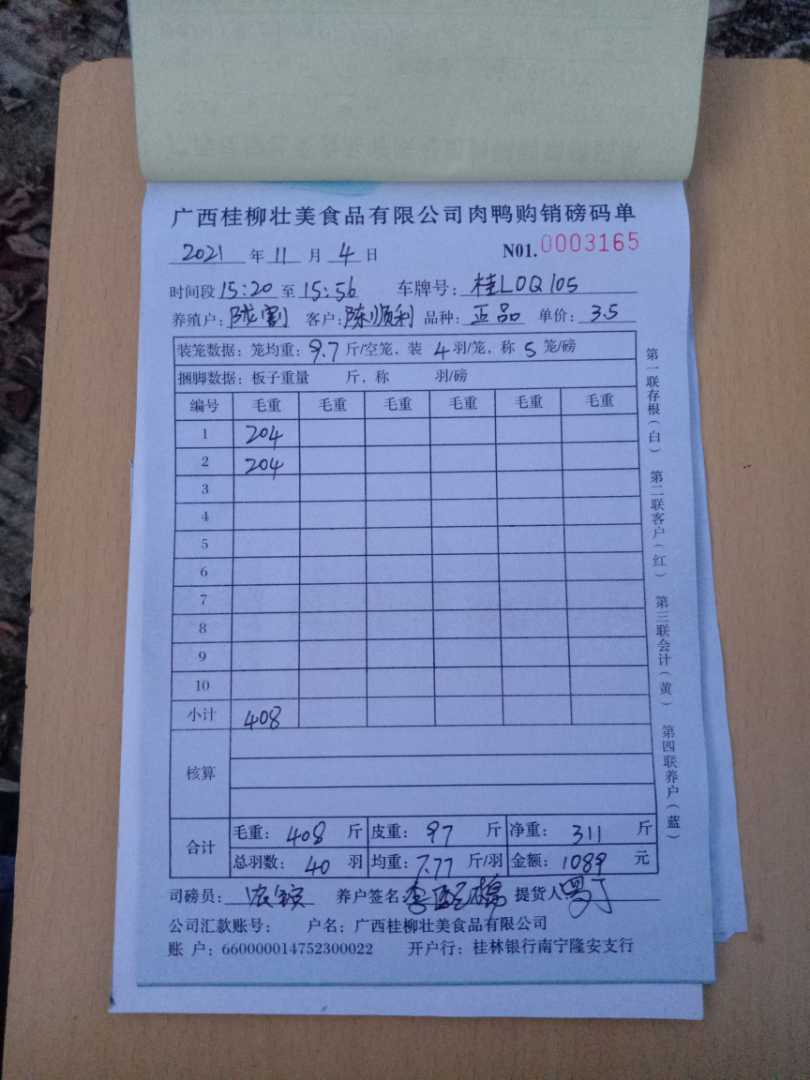 广西桂柳壮美食品有限公司肉鸭购销磅码单
2021 年 11 月 4 日 N01. 0003165
时间段 15:20 至 15:56 车牌号: 桂L0Q105
养殖户: 陇割 客户: 陈顺利 品种: 正品 单价: 3.5
装笼数据: 笼均重: 9.7 斤/空笼, 装 4 羽/笼, 称 5 笼/磅
捆脚数据: 板子重量 斤, 称 羽/磅
编号 毛重 毛重 毛重 毛重 毛重 毛重
1 204
2 204
3
4
5
6
7
8
9
10
小计 408
核算
合计 毛重: 408 斤 皮重: 97 斤 净重: 311 斤
总羽数: 40 羽 均重: 7.77 斤/羽 金额: 1089 元
司磅员: 养户签名: 提货人
公司汇款账号: 户名: 广西桂柳壮美食品有限公司
账 户: 660000014752300022 开户行: 桂林银行南宁隆安支行
第一联存根(白) 第二联客户(红) 第三联会计(黄) 第四联养户(蓝)